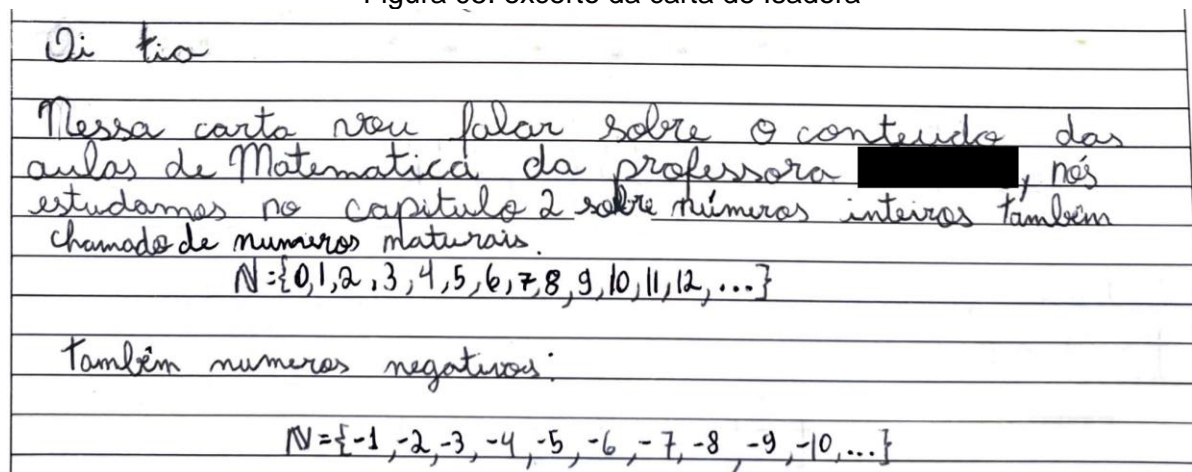 Figura 03: excerto da carta de Isadora
Oi tia
Nessa carta vou falar sobre o conteudo das
aulas de Matematica da professora , nós
estudamos no capitulo 2 sobre números inteiros também
chamado de numeros naturais.
N={0,1,2,3,4,5,6,7,8,9,10,11,12,...}
Também numeros negativos:
N={-1,-2,-3,-4,-5,-6,-7,-8,-9,-10,...}